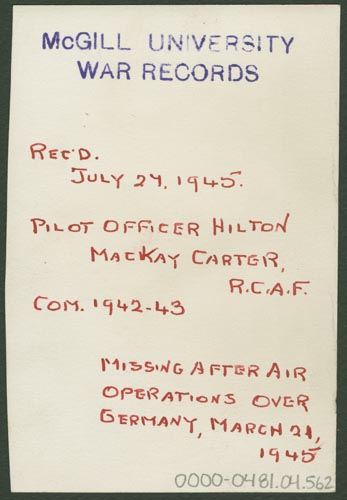 McGILL UNIVERSITY
WAR RECORDS
REC'D.
JULY 27, 1945.
PILOT OFFICER HILTON
MACKAY CARTER,
R.C.A.F.
COM. 1942-43
MISSING AFTER AIR
OPERATIONS OVER
GERMANY, MARCH 21,
1945
0000-0481.04.562